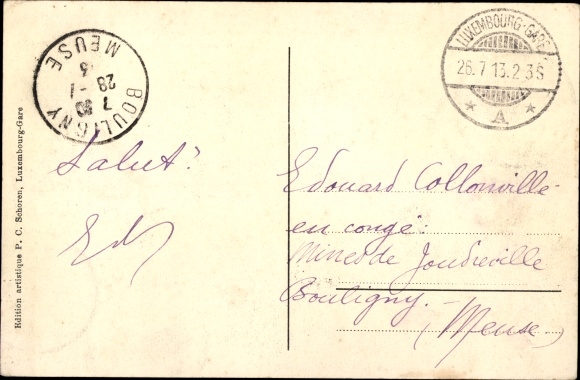 BOULIGNY
7 30
28 -7
13
MEUSE
LUXEMBOURG-GARE
26.7 13.2-3S
* A *
Edition artistique P. C. Schoren, Luxembourg-Gare
Salut!
Ed
Edouard Collonville
en congé:
Mines de Joudreville
Bouligny.-
(Meuse.)